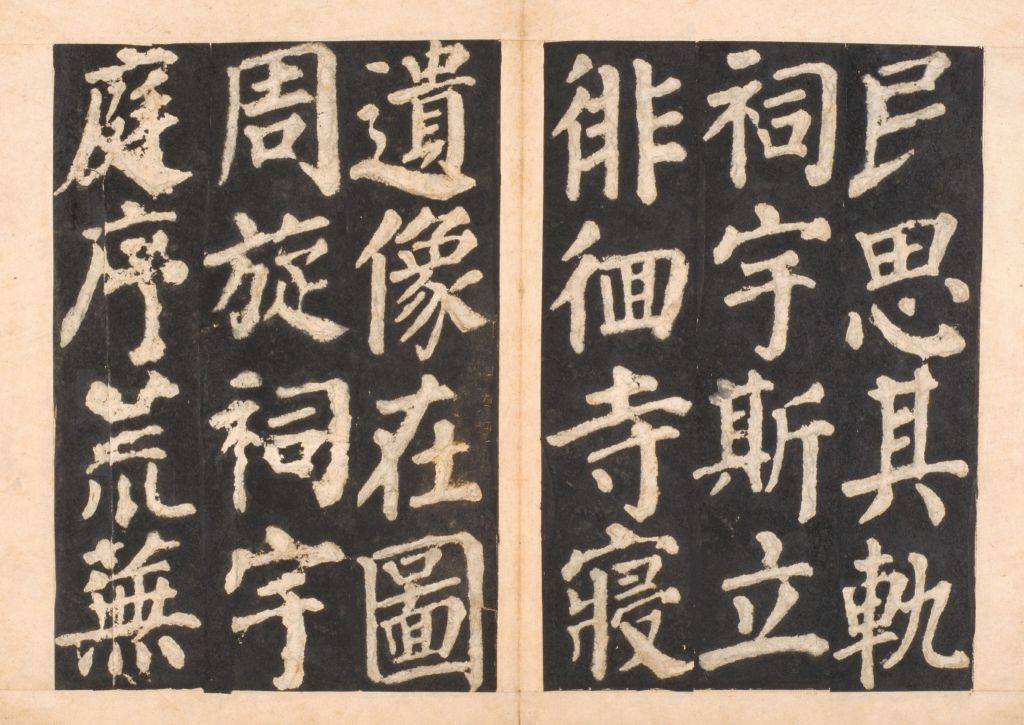 民思其軌
祠宇斯立
徘徊寺寢
遺像在圖
周旋祠宇
庭序荒蕪